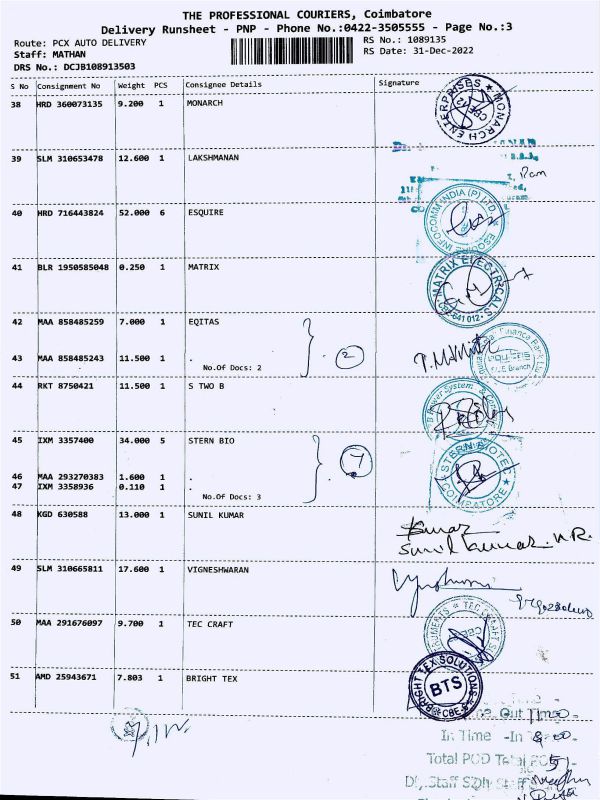 THE PROFESSIONAL COURIERS, Coimbatore
Delivery Runsheet - PNP - Phone No.:0422-3505555 - Page No.:3
Route: PCX AUTO DELIVERY RS No.: 1089135
Staff: MATHAN RS Date: 31-Dec-2022
DRS No.: DCJB108913503
S No Consignment No Weight PCS Consignee Details Signature
38 HRD 360073135 9.200 1 MONARCH
MONARCH ENTERPRISES
39 SLM 310653478 12.600 1 LAKSHMANAN
Ram
40 HRD 716443824 52.000 6 ESQUIRE
ESQUIRE INFOCOMM INDIA (P) LTD
41 BLR 1950585048 0.250 1 MATRIX
MATRIX ELECTRICALS
CBE-641 012
42 MAA 858485259 7.000 1 EQITAS
43 MAA 858485243 11.500 1 .
No.Of Docs: 2
2
44 RKT 8750421 11.500 1 S TWO B
45 IXM 3357400 34.000 5 STERN BIO
46 MAA 293270383 1.600 1 .
47 IXM 3358936 0.110 1 .
No.Of Docs: 3
7
STERN BIOTEC
COIMBATORE
48 KGD 630588 13.000 1 SUNIL KUMAR
Kumar
Sunil kumar. N.R.
49 SLM 310665811 17.600 1 VIGNESHWARAN
50 MAA 291676097 9.700 1 TEC CRAFT
51 AMD 25943671 7.803 1 BRIGHT TEX
BRIGHT TEX SOLUTIONS
BTS
CBE
Out 11:00
In Time -In 8:00
Total POD Total PCS